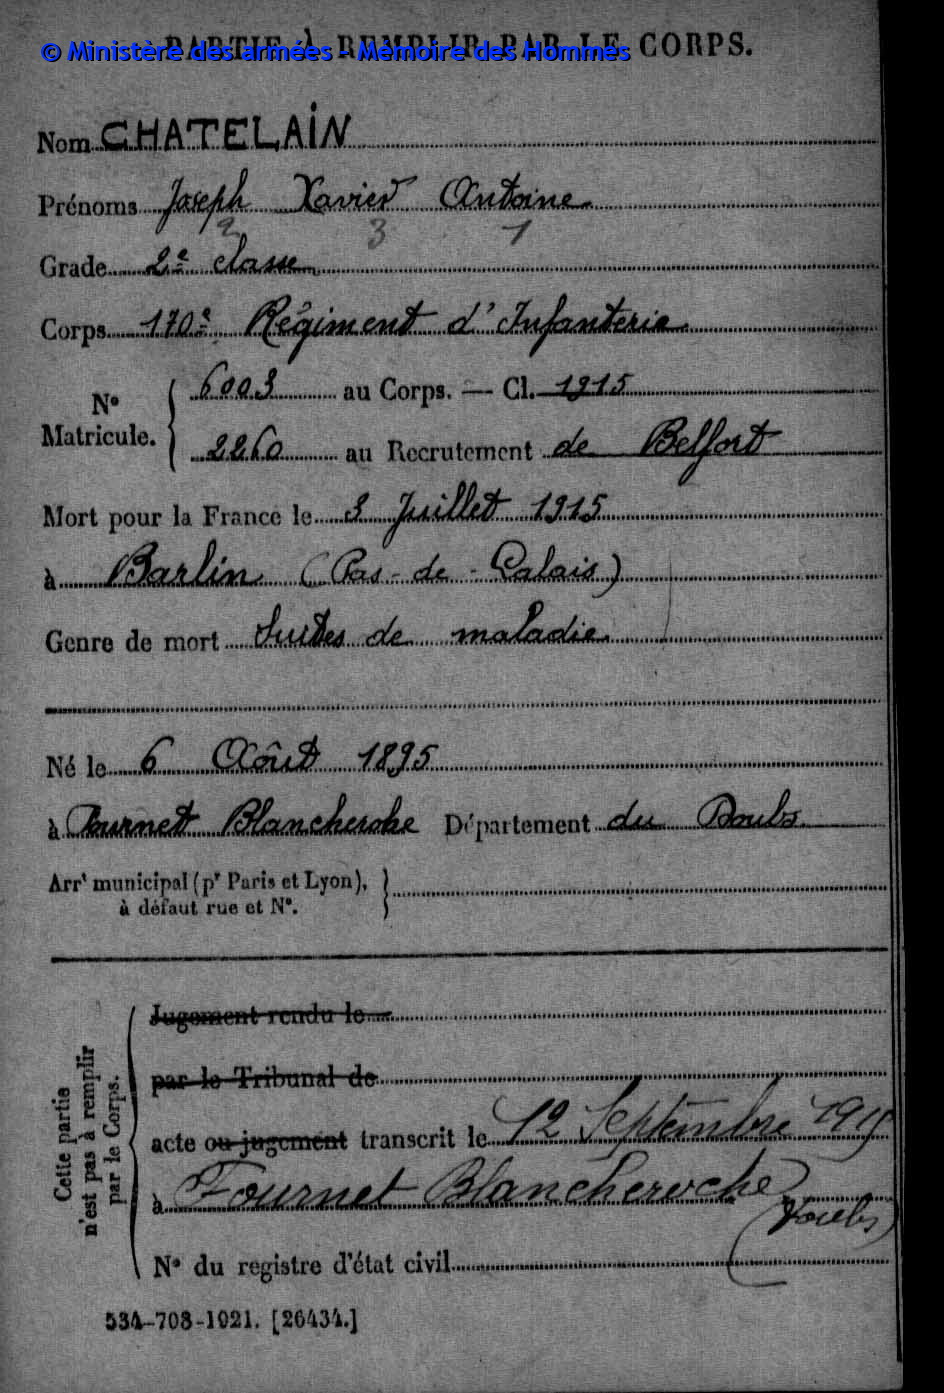 PARTIE À REMPLIR PAR LE CORPS.
© Ministère des armées - Mémoire des Hommes
Nom CHATELAIN
Prénoms Joseph Xavier Antoine
2 3 1
Grade 2e classe
Corps 170e Régiment d'Infanterie
No Matricule.
6003 au Corps. — Cl. 1915
2260 au Recrutement de Belfort
Mort pour la France le 3 Juillet 1915
à Barlin (Pas-de-Calais)
Genre de mort Suites de maladie
Né le 6 Août 1895
à Fournet Blancheroche Département du Doubs
Arrt municipal (pr Paris et Lyon),
à défaut rue et No.
Cette partie
n'est pas à remplir
par le Corps.
Jugement rendu le
par le Tribunal de
acte ou jugement transcrit le 12 Septembre 1915
à Fournet Blancheroche
(Doubs)
No du registre d'état civil
534-708-1921. [26434.]